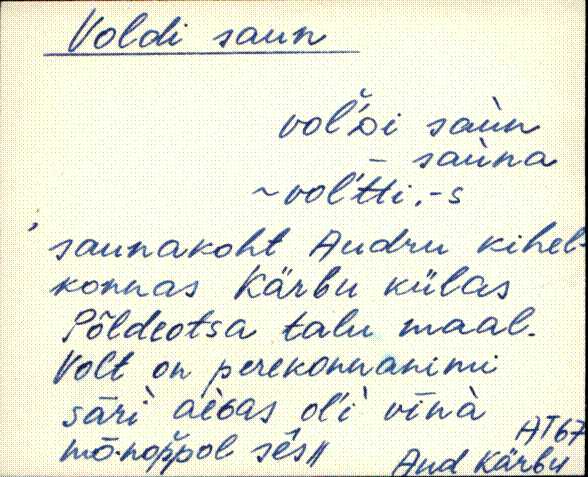 Voldi saun
vol'ᴅi saùn
– saùna
~ vol'tti, -s
saunakoht Audru kihel-
konnas Kärbu külas
Põldeotsa talu maal.
Volt on perekonnanimi
sāri aèɢas ol'i vīnà
mō·noppol sēs //
AT 67
Aud Kärbu